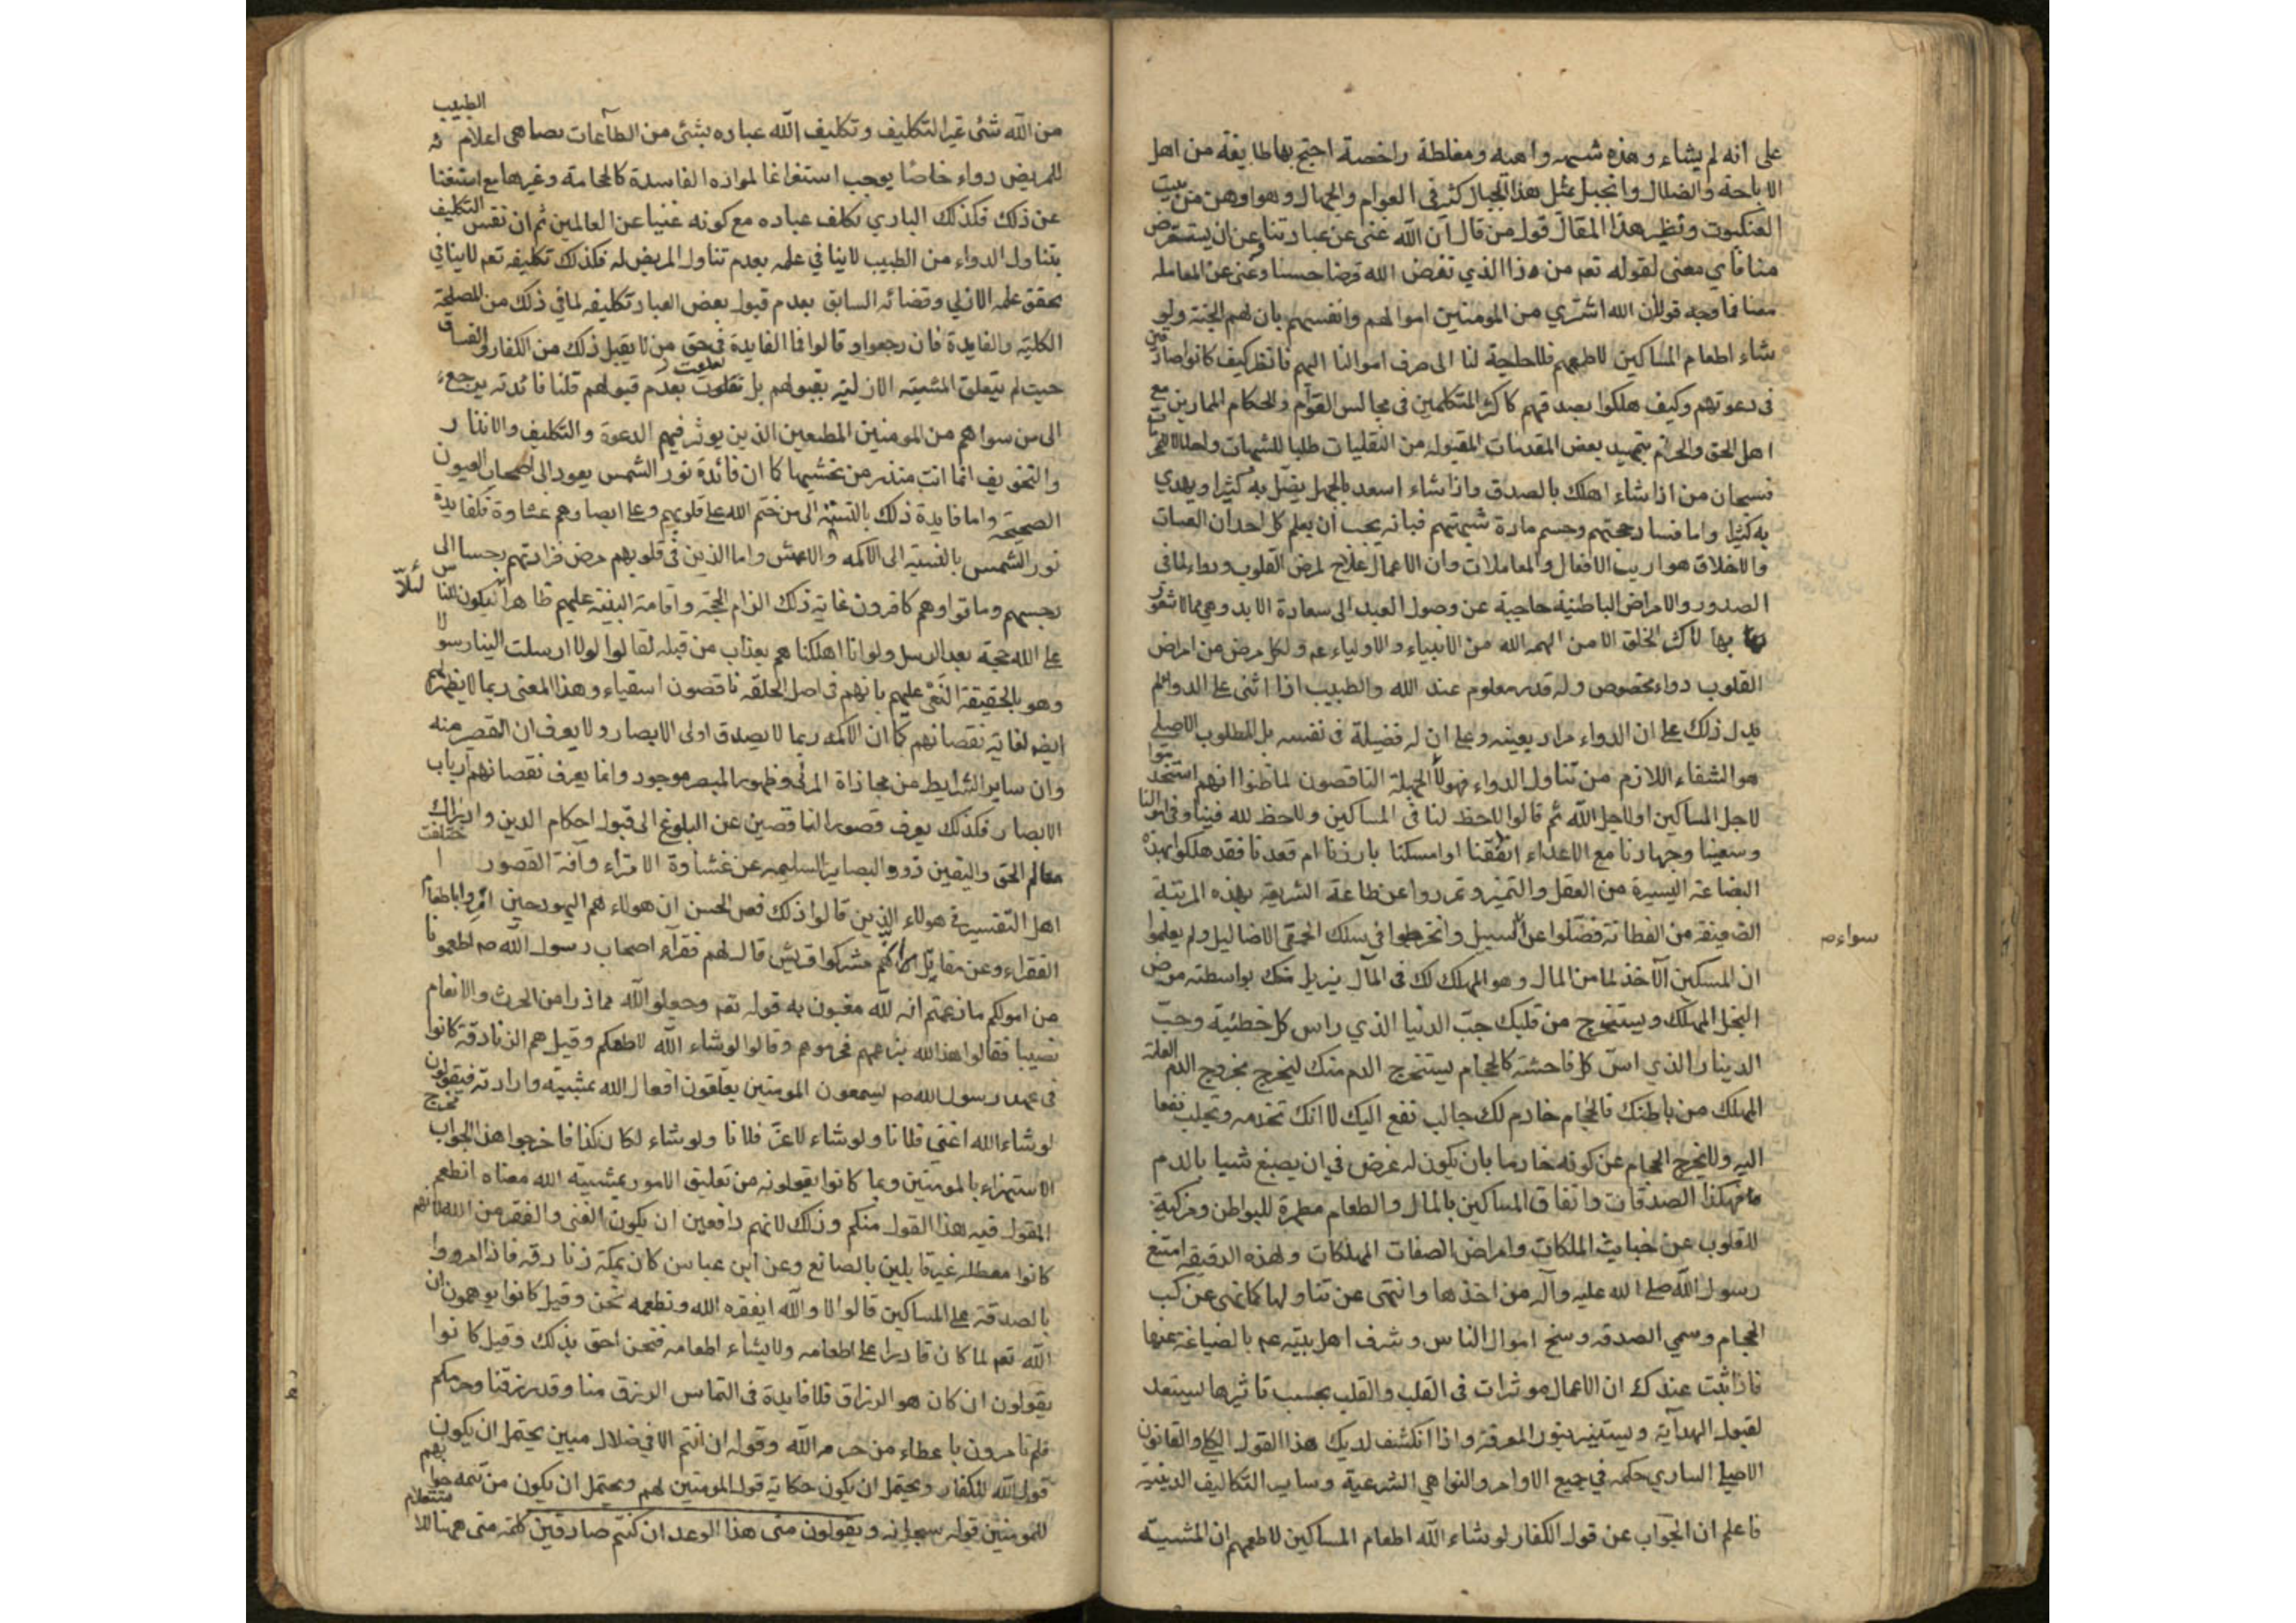 على انه لم يشاء وهذه شبهه واهيه ومغلطة داحضة احتج بها طايفة من اهل
الاباحة والضلال وانجبل بمثل هذا الجبال كثر فى العوام والجهال وهو اوهن من بيت
العنكبوت ونظير هذا المقال قول من قال ان الله غنى عن عبادتنا وعن ان يستقرض
منا فاي معنى لقوله تعم من ذا الذي تقرض الله قرضا حسنا وغنى عن المعاملة
معنا فما وجه قوله ان الله اشتري من المومنين اموالهم وانفسهم بان لهم الجنة ولو
شاء اطعام المساكين لاطعمهم فلا حاجة لنا الى صرف اموالنا اليهم فانظر كيف كانوا صادقين
فى دعوتهم وكيف هلكوا بصدقهم كاكثر المتكلمين فى مجالس القوام والحكام الممارين مع
اهل الحق والحرام بتمهيد بعض المقدمات المقبوله من النقليات طلبا للشبهات
فسبحان من اذا شاء اهلك بالصدق واذا شاء اسعد بالجهل يضل به كثيرا ويهدي
به كثيرا واما فساد حجتهم وحسم مادة شبهتهم فبانه يجب ان يعلم كل احد ان
والاخلاق هو اريب الافعال والمعاملات وان الاعمال علاج لمرض القلوب ودواء لما فى
الصدور والامراض الباطنية حاجبة عن وصول العبد الى سعادة الابد وهي مما لا شعور
بها لاكثر الخلق الا من الهمه الله من الانبياء والاولياء عم ولكل مرض من امراض
القلوب دواء مخصوص وله قدر معلوم عند الله والطبيب اذا اثنى على الدواء لم
يدل ذلك على ان الدواء مراد بعينه وعلى ان له فضيلة فى نفسه بل المطلوب الاصلي
هو الشفاء اللازم من تناول الدواء فهولاء الجهلة الناقصون لما ظنوا انهم استخدموا
لاجل المساكين او لاجل الله ثم قالوا لاحظ لنا فى المساكين ولا حظ لله فينا وفى اموالنا
وسعينا وجهادنا مع الاعداء انفقنا او امسكنا بارزنا ام قعدنا فقد هلكوا بهذه
البضاعة اليسيرة من العقل والتميز وتمردوا عن طاعة الشريعة بهذه المرتبة
الضعيفة من الفطانة فضلوا عن السبيل وانخرطوا فى سلك الحمقى الاضاليل ولم يعلموا
سواء ص
ان المسكين الآخذ لما من المال وهو المهلك لك فى المآل يزيل منك بواسطته مرض
البخل المهلك ويستخرج من قلبك حب الدنيا الذي راس كل خطئية وحب
الدينار الذي اس كل فاحشة كالحجام يستخرج الدم منك ليخرج بخروج الدم العلة
المهلك من باطنك فالحجام خادم لك جالب نفع اليك لا انك تخدمه وتجلب نفعا
اليه ولا يخرج الحجام عن كونه خادما بان يكون له غرض في ان يصبغ شيا بالدم
فهكذا الصدقات وانفاق المساكين بالمال والطعام مطهرة للبواطن ومزكية
للقلوب عن خبايث الملكات وامراض الصفات المهلكات ولهذه الدقيقه امتنع
رسول الله صلى الله عليه وآله من اخذها وانتهى عن تناولها كما نهى عن كسب
الحجام وسمي الصدقه وسخ اموال الناس وشرف اهل بيته عم بالصيانة عنها
فاذا ثبت عندك ان الاعمال موثرات فى القلب والقلب بحسب تاثيرها يستعد
لقبول الهداية ويستنير بنور المعرفة واذا انكشف لديك هذا القول الكلي والقانون
الاصلي الساري حكمه في جميع الاوامر والنواهي الشرعية وساير التكاليف الدينية
فاعلم ان الجواب عن قول الكفار لو شاء الله اطعام المساكين لاطعمهم ان المشيته
من الله شئ غير التكليف وتكليف الله عباده بشئ من الطاعات يضاهى اعلام الطبيب
للمريض دواء خاصا يوجب استفراغا لمواده الفاسدة كالحجامة وغيرها مع استغنا
عن ذلك فكذلك الباري كلف عباده مع كونه غنيا عن العالمين ثم ان نفس التكليف
بتناول الدواء من الطبيب لا ينافي علمه بعدم تناول المريض له فكذلك تكليفه تعم لا ينافي
تحقق علمه الازلي وقضائه السابق بعدم قبول بعض العباد تكليفه لما في ذلك من المصلحة
الكلية والفايدة فان رجعوا وقالوا فما الفايدة فى حق من لا يقبل ذلك من الكفار والفساق
حيث لم يتعلق المشيته الازلية بقبولهم بل تعلقت بعدم قبولهم قلنا فائدته يرجع
الى من سواهم من المومنين المطيعين الذين يوثر فيهم الدعوة والتكليف والانذار
والتخويف انما انت منذر من يخشيها كما ان فائدة نور الشمس يعود الى اصحاب العيون
الصحيحه واما فايدة ذلك بالنسبة الى من ختم الله على قلوبهم وعلى ابصارهم غشاوة فكفايدة
نور الشمس بالنسبة الى الاكمه والاعمش واما الذين فى قلوبهم مرض فزادتهم رجسا الى
رجسهم وماتوا وهم كافرون غاية ذلك الزام الحجة واقامة البينة عليهم ظاهرا لئلا يكون للناس
على الله حجة بعد الرسل ولو انا اهلكناهم بعذاب من قبله لقالوا لولا ارسلت الينا رسولا
وهو بالحقيقة النعى عليهم بانهم فى اصل الخلقه ناقصون اشقياء وهذا المعنى ربما لا يظهر لهم
ايضا لغاية نقصانهم كما ان الاكمه ربما لا يصدق اولى الابصار ولا يعرف ان القصر منه
وان ساير الشرايط من محاذاة المرئي وظهور المبصر موجود وانما يعرف نقصانهم ارباب
الابصار فكذلك يعرف قصور الناقصين عن البلوغ الى قبول احكام الدين وادراك
معالم الحق واليقين ذووا البصاير السليمه عن غشاوة الامتراء وآفة القصور اختلفت
اهل التفسير فى هولاء الذين قالوا ذلك فعن الحسن ان هولاء هم اليهود حين امروا باطعام
الفقراء وعن مقاتل انهم مشركوا قريش قال لهم فقراء اصحاب رسول الله ص اطعمونا
من اموالكم ما زعمتم انه لله مغبون به قوله تعم وجعلوا لله مما ذرا من الحرث والانعام
نصيبا فقالوا هذا لله بزعمهم فحرموهم وقالوا لو شاء الله لاطعمكم وقيل هم الزنادقة كانوا
فى عهد رسول الله ص يسمعون المومنين يعلقون افعال الله بمشيته وارادته فيقولون
لو شاء الله اغنى فلانا ولو شاء لاعز فلانا ولو شاء لكان كذا فاخرجوا هذا الجواب مخرج
الاستهزاء بالمومنين وبما كانوا يقولونه من تعليق الامور بمشيته الله معناه انطعم
المقول فيه هذا القول منكم وذلك لانهم دافعين ان يكون الغنى والفقر من الله لانهم
كانوا معطله غير قايلين بالصانع وعن ابن عباس كان بمكة زنادقه فاذا امروا
بالصدقة على المساكين قالوا لا والله ايفقره الله ونطعمه نحن وقيل كانوا يوهمون ان
الله تعم لما كان قادرا على اطعامه ولا يشاء اطعامه فنحن احق بذلك وقيل كانوا
يقولون ان كان هو الرزاق فلا فايدة فى التماس الرزق منا وقد رزقنا وحرمكم
فلم تامرون باعطاء من حرمه الله وقوله ان انتم الا في ضلال مبين يحتمل ان يكون
قول الله للكفار ويحتمل ان يكون حكاية قول المومنين لهم ويحتمل ان يكون من تتمه جوابهم
للمومنين قوله سبحانه ويقولون متى هذا الوعد ان كنتم صادقين كلمة متى ههنا للاستعلام